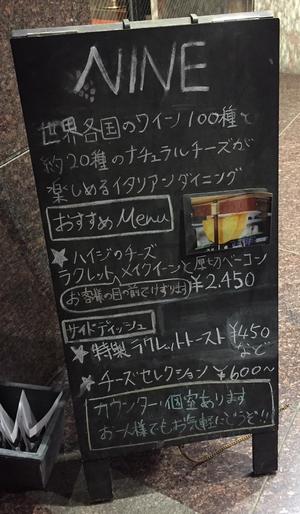 NINE
世界各国のワイン100種と
約20種のナチュラルチーズが
楽しめるイタリアンダイニング
おすすめMenu
★ハイジのチーズ
ラクレット、メイクイーンと厚切ベーコン
お客様の目の前でけずります ¥2,450
サイドディッシュ
★特製ラクレットトースト ¥450
など
★チーズセレクション ¥600〜
カウンター・個室あります
お一人様でもお気軽にどうぞ!!